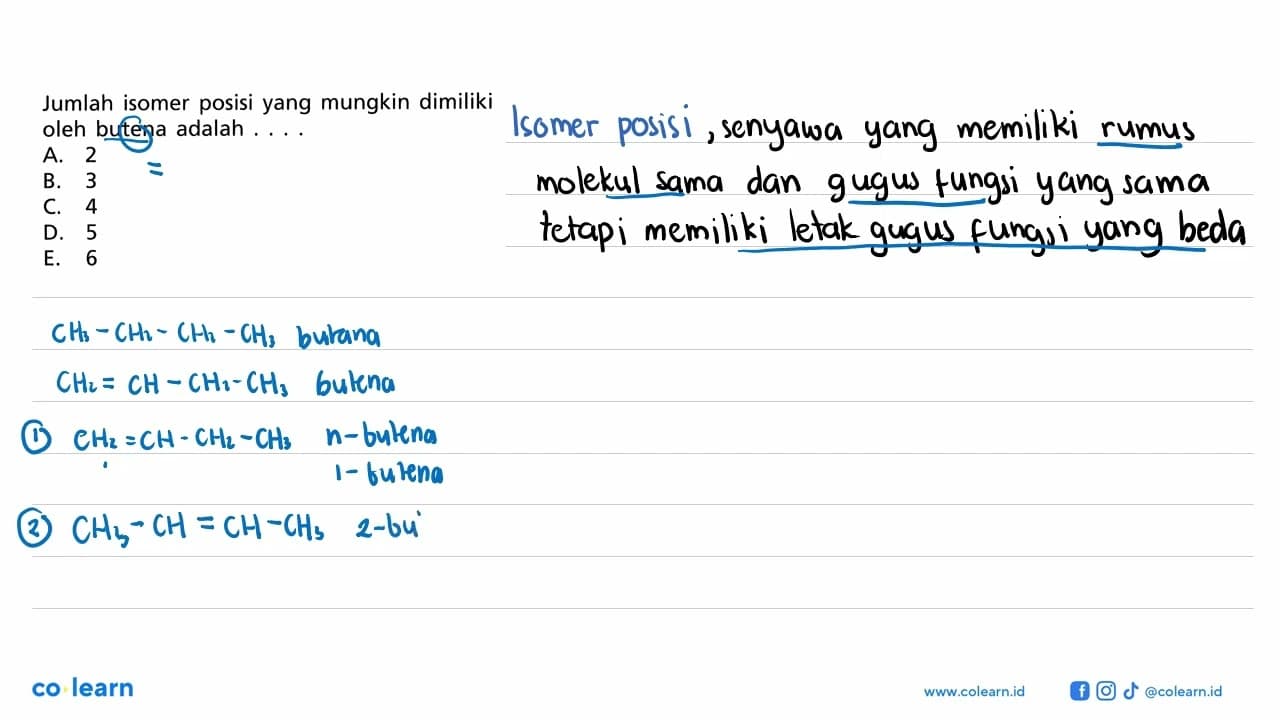 Jumlah isomer posisi yang mungkin dimiliki
oleh butena adalah . . . .
A. 2
B. 3
C. 4
D. 5
E. 6
=
Isomer posisi, senyawa yang memiliki rumus
molekul sama dan gugus fungsi yang sama
tetapi memiliki letak gugus fungsi yang beda
CH₃ - CH₂ - CH₂ - CH₃ butana
CH₂ = CH - CH₂ - CH₃ butena
① CH₂ = CH - CH₂ - CH₃ n-butena
1-butena
② CH₃ - CH = CH - CH₃ 2-bu
co learn
www.colearn.id
@colearn.id